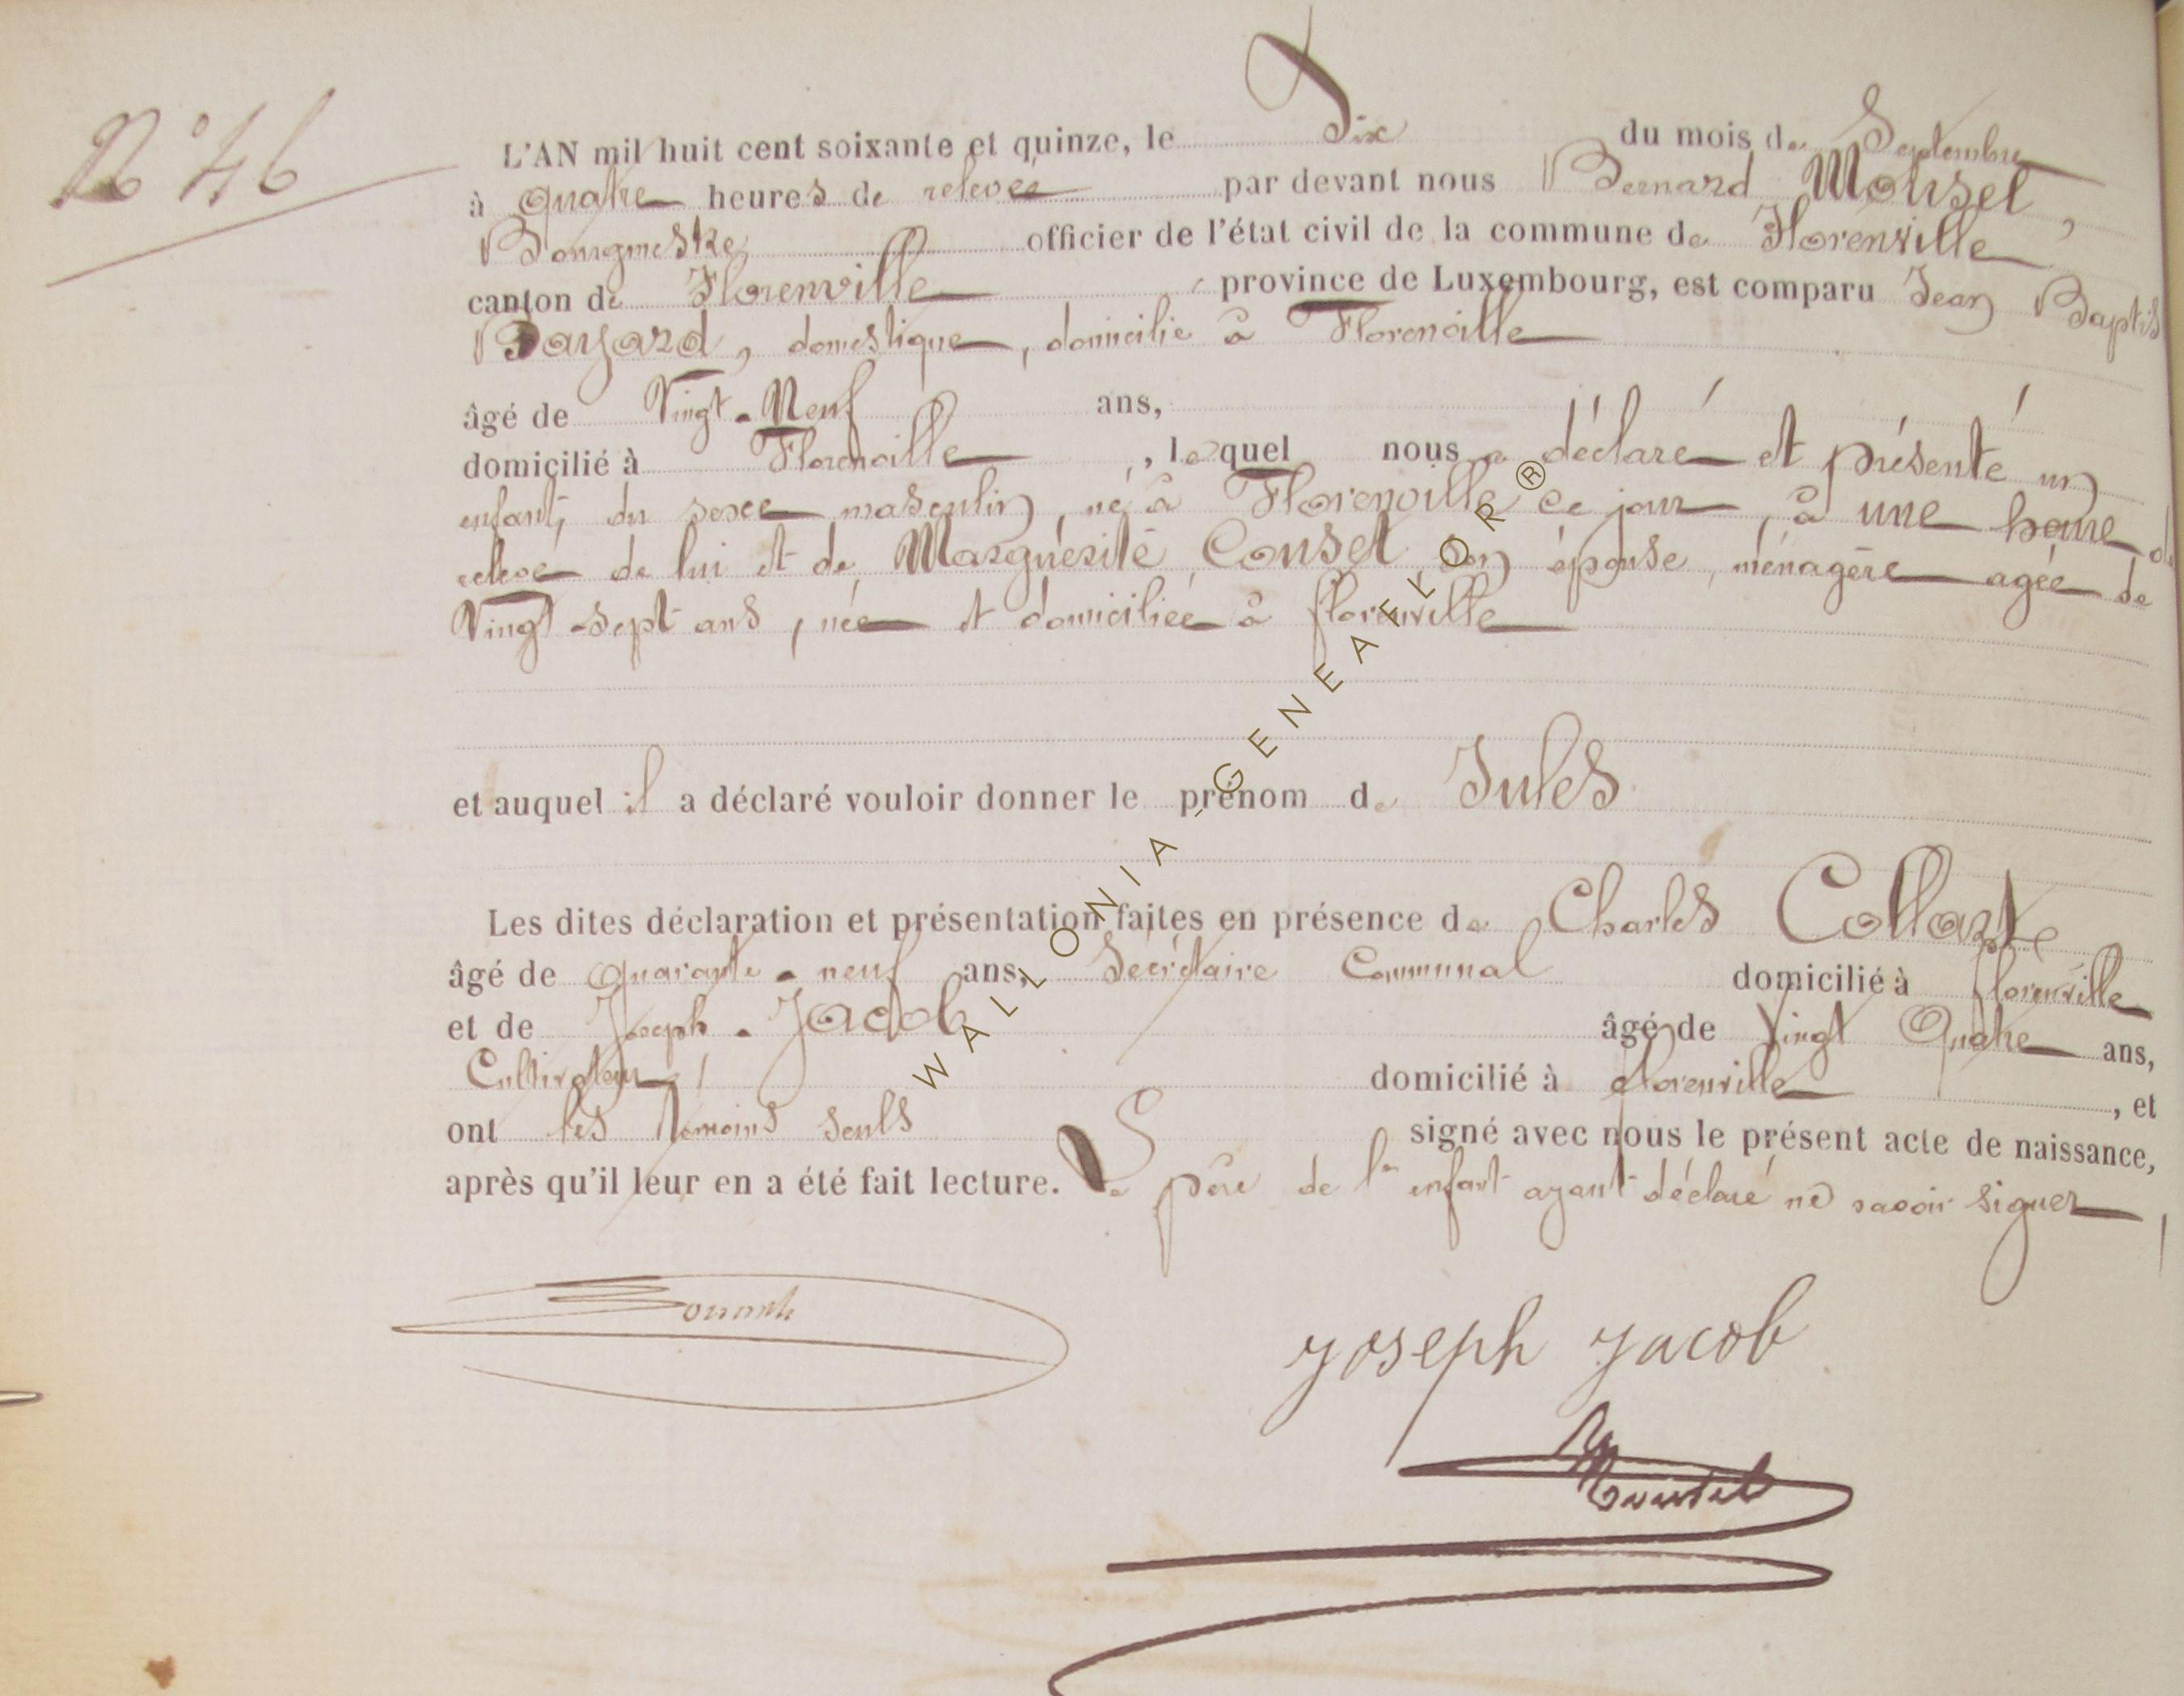 N° 46
L'AN mil huit cent soixante et quinze, le Dix du mois de Septembre
à quatre heures de relevée par devant nous Bernard Mousel,
Bourgmestre, officier de l'état civil de la commune de Florenville,
canton de Florenville province de Luxembourg, est comparu Jean Baptis
Bayard, domestique, domicilié à Florenville
âgé de Vingt-Neuf ans,
domicilié à Florenville, lequel nous a déclaré et présenté un
enfant, du sexe masculin, né à Florenville ce jour, à une heure d
relevée de lui et de Marguerite Conset son épouse, ménagère agée de
Vingt-sept ans, née et domiciliée à florenville
et auquel il a déclaré vouloir donner le prénom de Jules
Les dites déclaration et présentation faites en présence de Charles Collart
âgé de Quarante-neuf ans, Secrétaire Communal domicilié à florenville
et de Joseph-Jacob âgé de Vingt Quatre ans,
Cultivateur, domicilié à florenville, et
ont les témoins seuls signé avec nous le présent acte de naissance,
après qu'il leur en a été fait lecture. Le père de l'enfant ayant déclaré ne savoir signer
Joseph Jacob
Mousel
WALLONIA-GENEAFLOR®